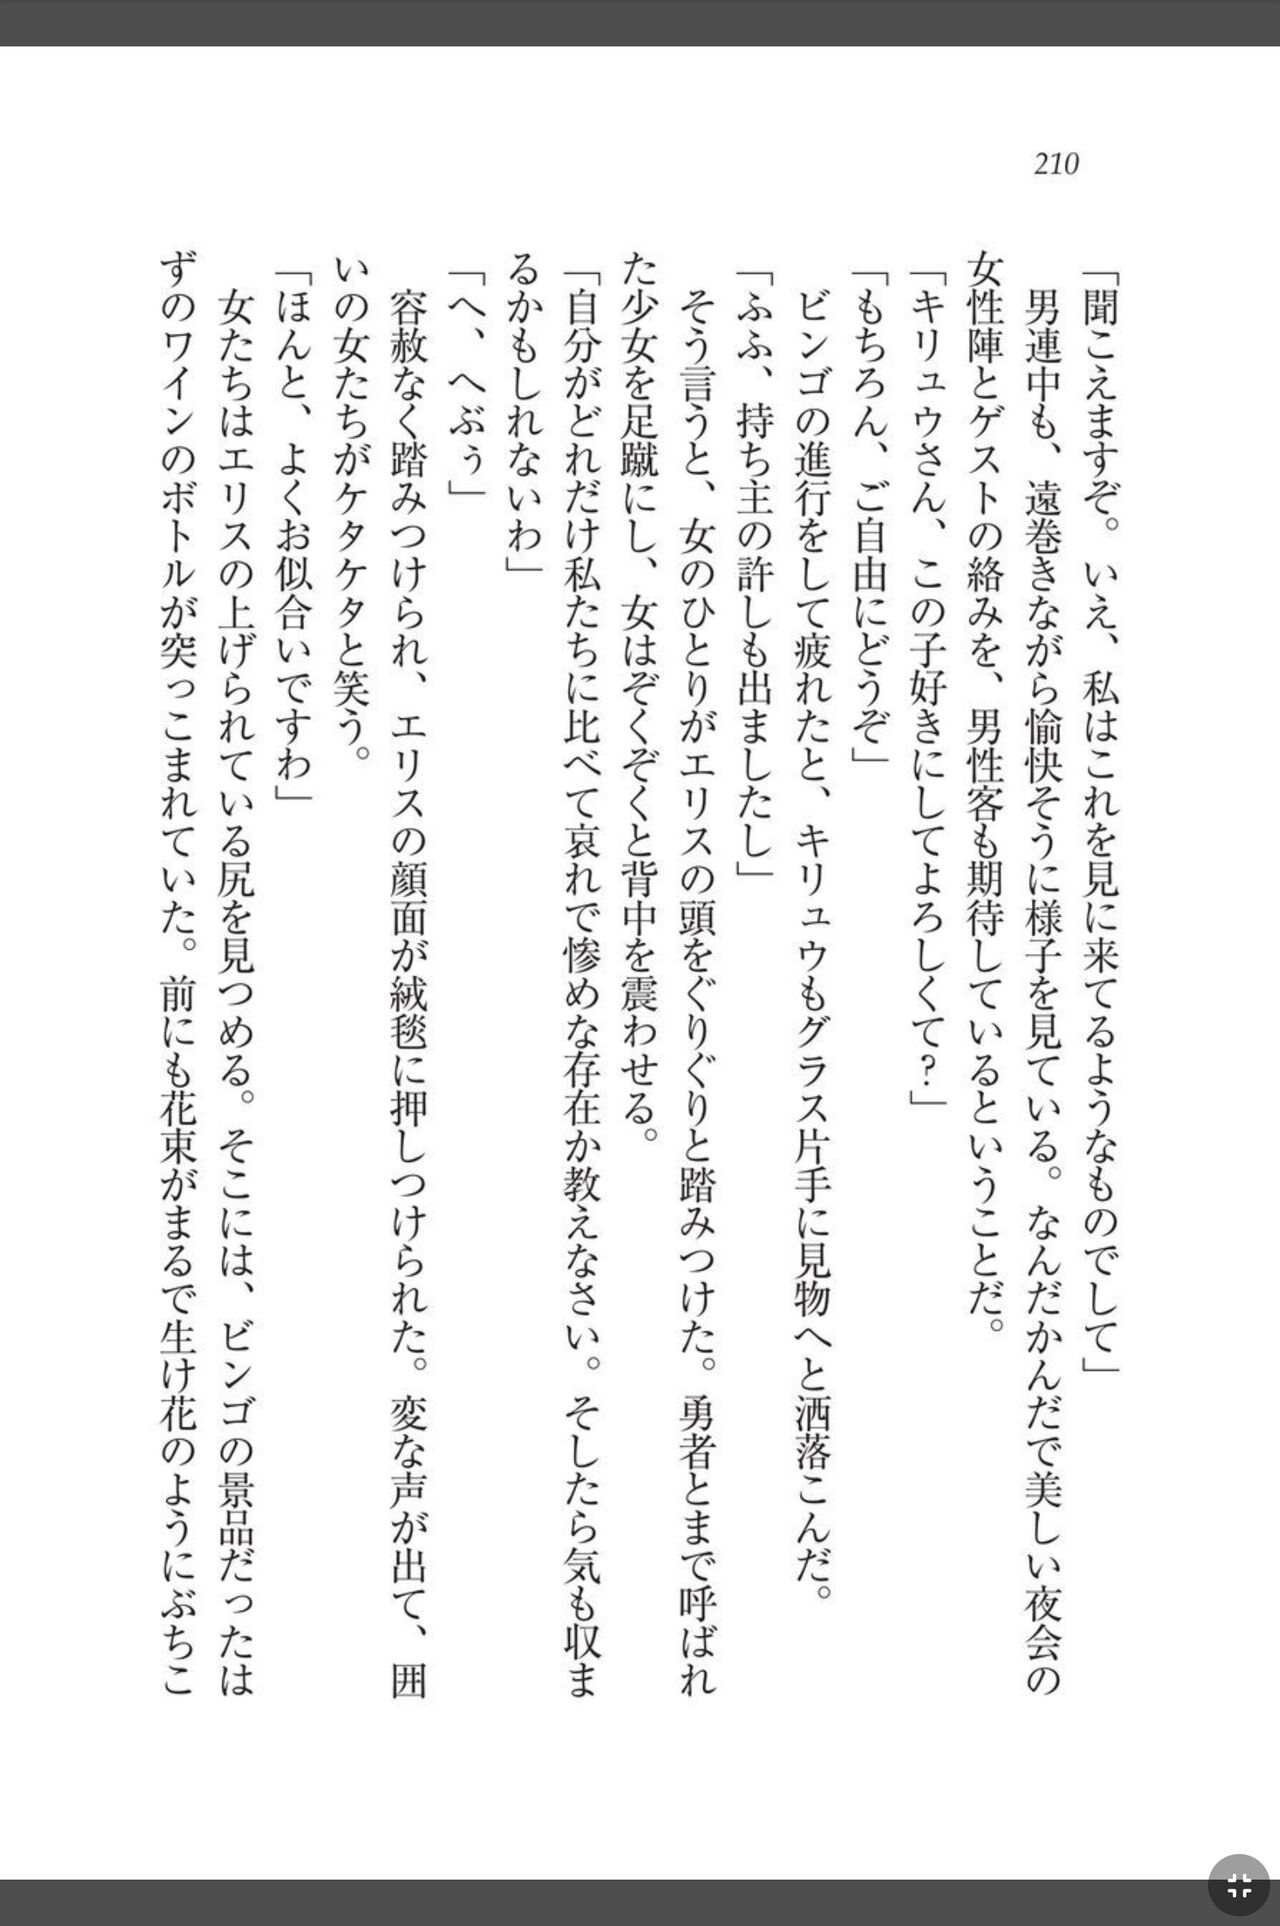 210
「聞こえますぞ。いえ、私はこれを見に来てるようなものでして」
男連中も、遠巻きながら愉快そうに様子を見ている。なんだかんだで美しい夜会の
女性陣とゲストの絡みを、男性客も期待しているということだ。
「キリュウさん、この子好きにしてよろしくて？」
「もちろん、ご自由にどうぞ」
ビンゴの進行をして疲れたと、キリュウもグラス片手に見物へと洒落こんだ。
「ふふ、持ち主の許しも出ましたし」
そう言うと、女のひとりがエリスの頭をぐりぐりと踏みつけた。勇者とまで呼ばれ
た少女を足蹴にし、女はぞくぞくと背中を震わせる。
「自分がどれだけ私たちに比べて哀れで惨めな存在か教えなさい。そしたら気も収ま
るかもしれないわ」
「へ、へぶぅ」
容赦なく踏みつけられ、エリスの顔面が絨毯に押しつけられた。変な声が出て、囲
いの女たちがケタケタと笑う。
「ほんと、よくお似合いですわ」
女たちはエリスの上げられている尻を見つめる。そこには、ビンゴの景品だったは
ずのワインのボトルが突っこまれていた。前にも花束がまるで生け花のようにぶちこ